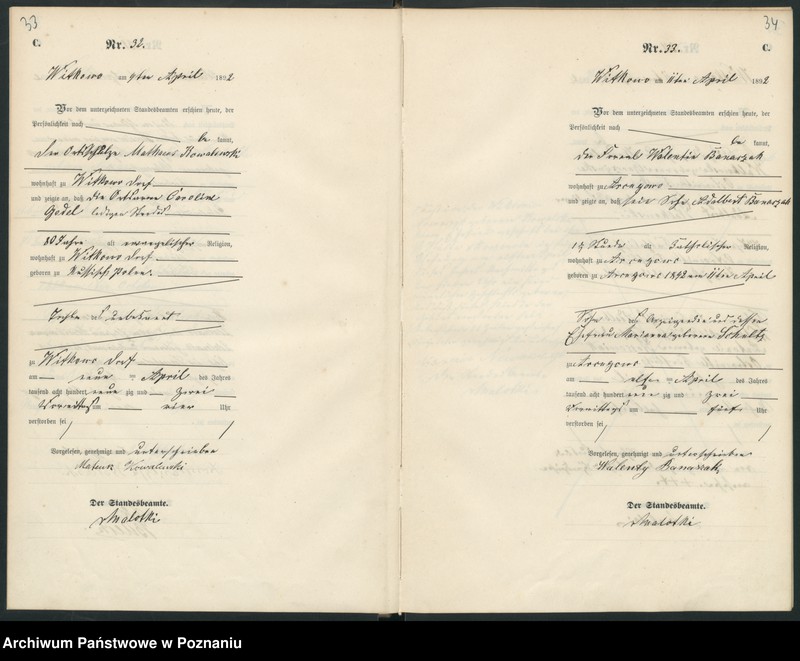 33
C.
Nr. 32.
Witkowo am 9ten April 1892
Vor dem unterzeichneten Standesbeamten erschien heute, der
Persönlichkeit nach
be kannt,
der Ortsschulze Matheus Kowalewski
wohnhaft zu Witkowo Dorf
und zeigte an, daß die Ortsarme Caroline
Gedel ledigen Standes
80 Jahre alt evangelischer Religion,
wohnhaft zu Witkowo Dorf
geboren zu Russisch Polen
Tochte unbekannt
zu Witkowo Dorf
am neun ten April des Jahres
tausend acht hundert neun zig und zwei
Vormittags um vier Uhr
verstorben sei
Vorgelesen, genehmigt und unterschrieben
Mateusz Kowalewski
Der Standesbeamte.
Malotki
34
Nr. 33.
C.
Witkowo am 11ten April 1892
Vor dem unterzeichneten Standesbeamten erschien heute, der
Persönlichkeit nach
be kannt,
der Valentin Banaszak
wohnhaft zu
und zeigte an, daß sein Sohn Adalbert Banaszak
alt katholischer Religion,
wohnhaft zu
geboren zu 1892 am 11ten April
Sohn des Anzeigenden und dessen
Ehefrau Marianna geborene Schultz
zu
am elften April des Jahres
tausend acht hundert neun zig und zwei
Vormittags um fünf Uhr
verstorben sei
Vorgelesen, genehmigt und unterschrieben
Walenty Banaszak
Der Standesbeamte.
Malotki
Archiwum Państwowe w Poznaniu